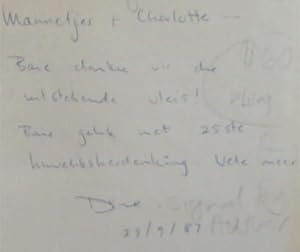 Mannetjes + Charlotte —
Baie dankie vir die
uitstekende vleis!
Baie geluk met 25ste
huweliksherdenking Vele meer
$60
Signed by
Author
29/9/87